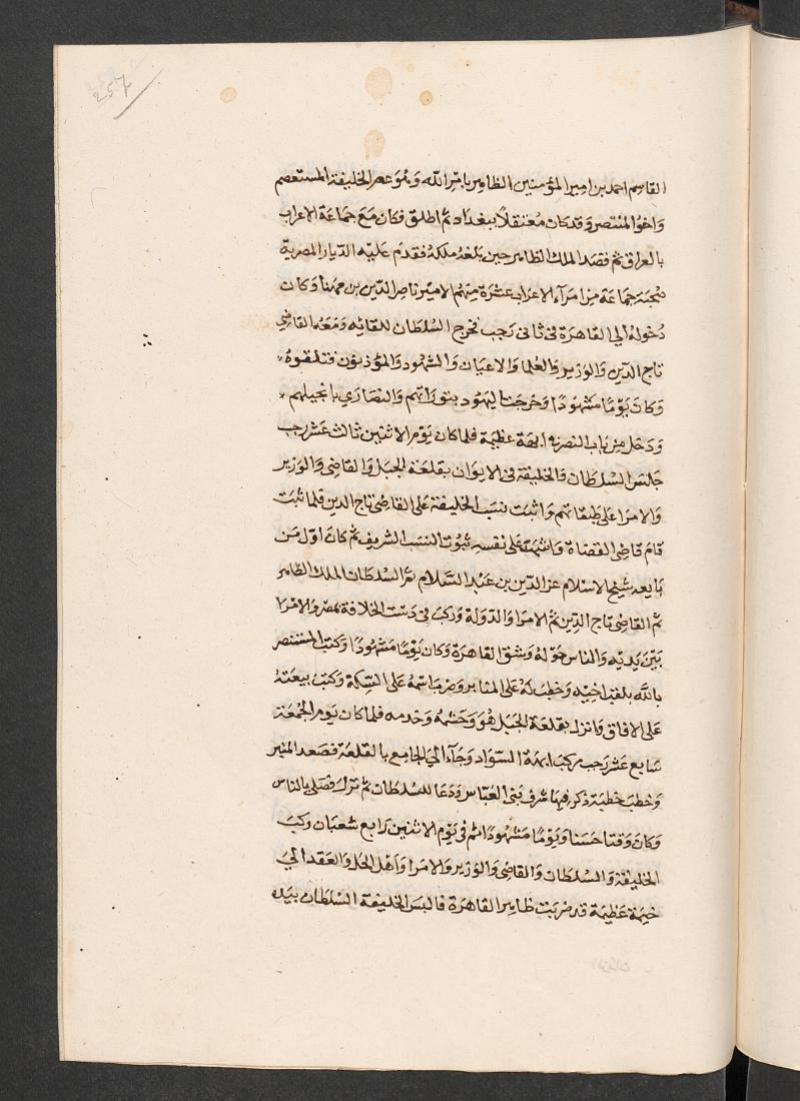 257
القاسم احمد بن امير المؤمنين الظاهر بامر الله وهو عم الخليفة المستعصم
واخو المنتصر وقد كان معتقلاً ببغداد ثم اطلق فكان مع جماعة الاعراب
بالعراق ثم قصد الملك الظاهر حين بلغه ملكه فقدم عليه الديار المصرية
صحبة جماعة من امرآء الاعراب عشرة منهم الامير ناصر الدين بن مهنا وكان
دخوله الي القاهرة في ثاني رجب فخرج السلطان للقائه ومعه القاضي
تاج الدين والوزير والعلما والاعيان والشهود والمؤذنون فتلقوه
وكان يوما مشهودا وخرجت اليهود بتوراتهم والنصاري بانجيلهم
ودخل من باب النصر في ابهة عظيمة فلما كان يوم الاثنين ثالث عشر رجب
جلس السلطان والخليفة في الايوان بقلعة الجبل والقاضي والوزير
والامرا على طبقاتهم واثبت نسب الخليفة على القاضي تاج الدين فلما ثبت
قام قاضي القضاة واشهد على نفسه ثبوت النسب الشريف ثم كان اول من
بايعه شيخ الاسلام عز الدين بن عبد السلام ثم السلطان الملك الظاهر
ثم القاضي تاج الدين ثم الامرا والدولة وركب في دست الخلافة بمصر والامرا
بين يديه والناس حوله وشق القاهرة وكان يوما مشهودا وكتب المستنصر
بالله بلقب اخيه وخطب له على المنابر وضرب اسمه على السكة وكتب بيعته
على الافاق وانزل بقلعة الجبل هو وحشمه وخدمه فلما كان يوم الجمعة
سابع عشر رجب ركب ابهة السواد وجآء الي الجامع بالقلعة فصعد المنبر
وخطب خطبة ذكر فيها شرف بني العباس ودعا للسلطان ثم نزل فصلى بالناس
وكان وقتا حسنا ويوما مشهودا ثم في يوم الاثنين رابع شعبان ركب
الخليفة والسلطان والقاضي والوزير والامرا واهل الحل والعقد الي
خيمة عظيمة قد ضربت ظاهر القاهرة فالبس الخليفة السلطان بيده